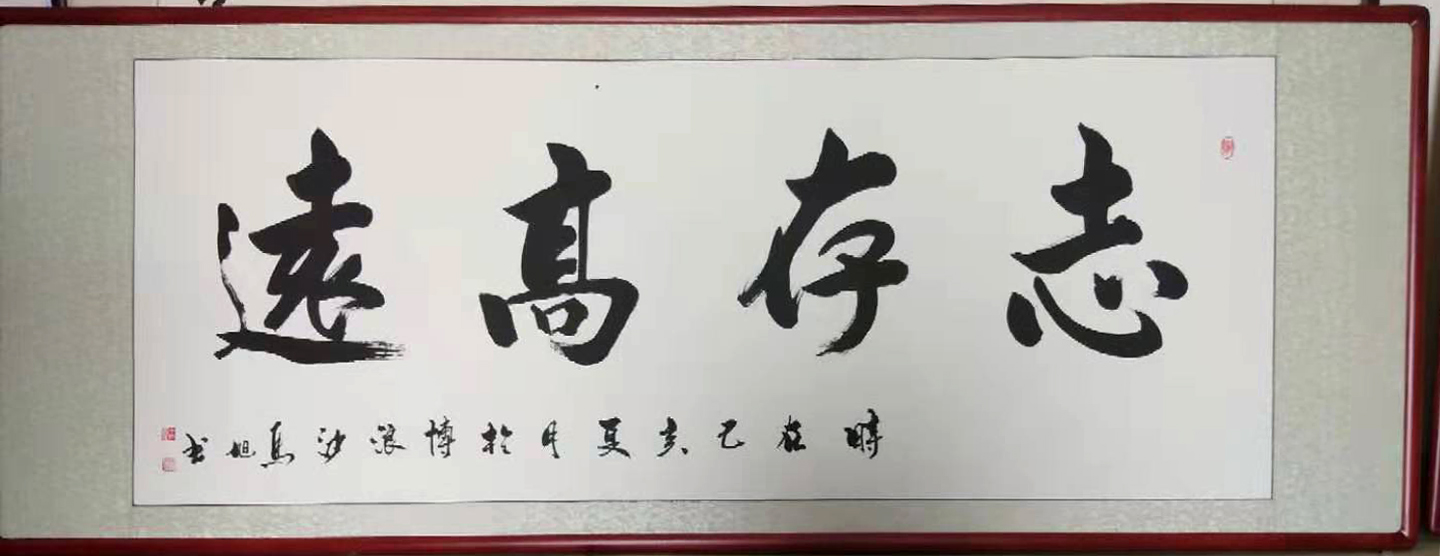 志存高遠
時在己亥夏月於博浪沙馬旭书